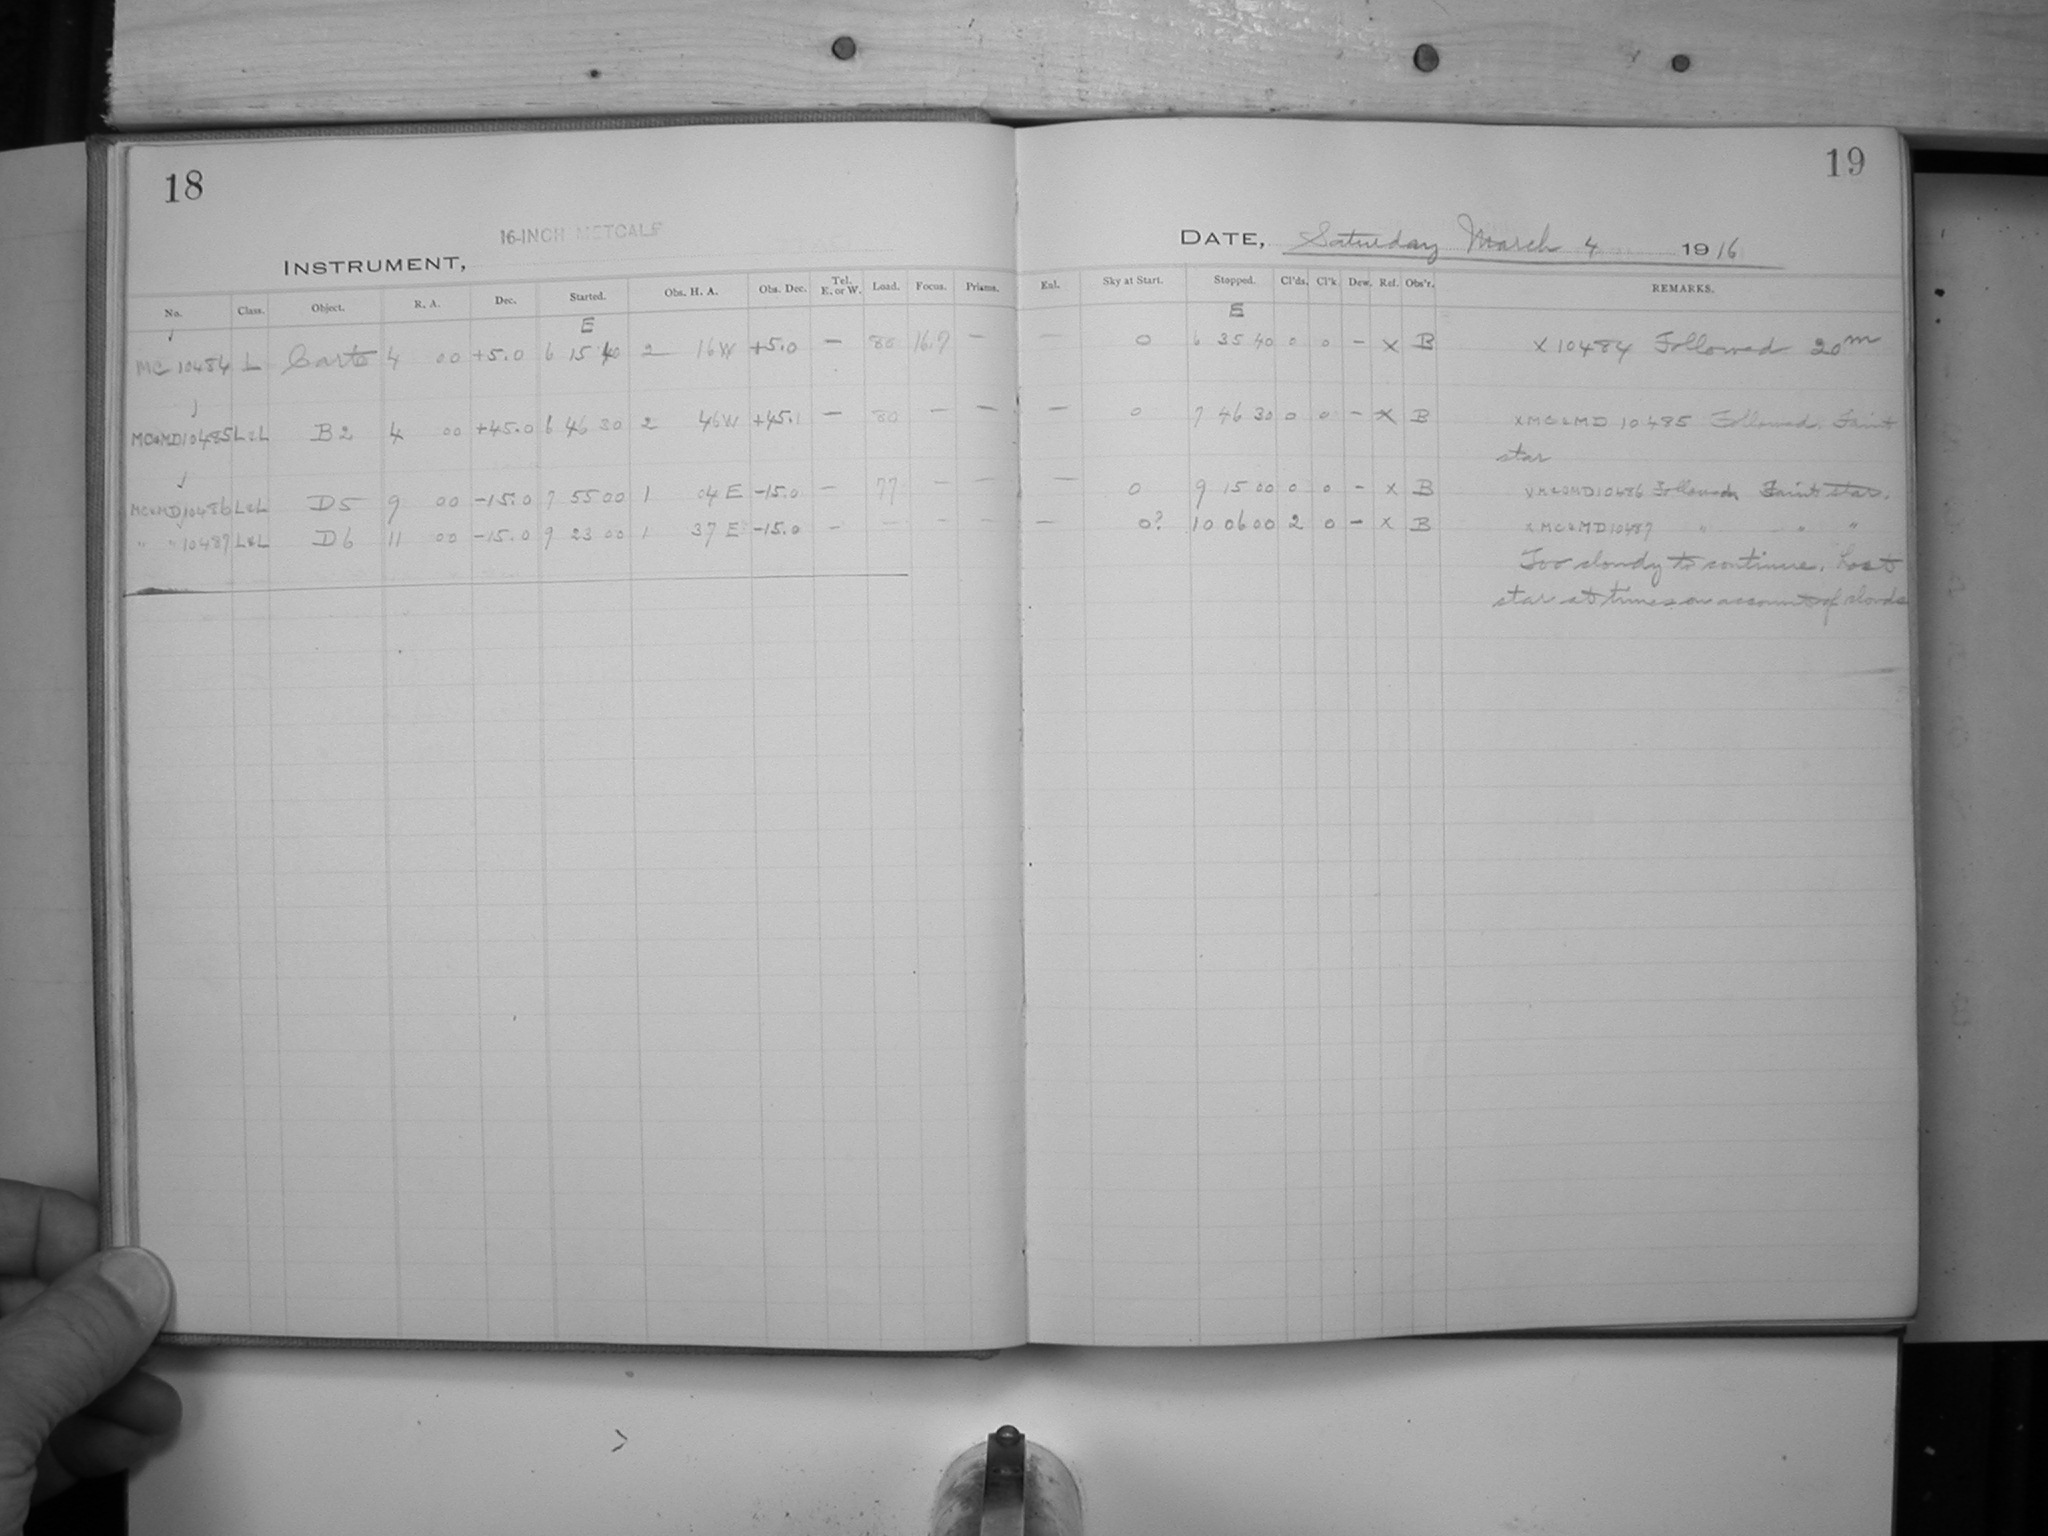 18
16-INCH METCALF
INSTRUMENT,
No. Class. Object. R. A. Dec. Started. Obs. H. A. Obs. Dec. Tel. E. or W. Load. Focus. Prisms.
E
MC 10484 L 4 00 +5.0 6 15 40 2 16 W +5.0 — 80 16.9 —
MC&MD10485 L&L B2 4 00 +45.0 6 46 30 2 46W +45.1 — 80 — —
MC&MD10486 L&L D5 9 00 -15.0 7 55 00 1 04 E -15.0 — 77 — —
" " 10487 L&L D6 11 00 -15.0 9 23 00 1 37 E -15.0 — — — —
19
DATE, Saturday March 4 1916
Exl. Sky at Start. Stopped. Cl'ds. Cl'k Dew. Ref. Obs'r. REMARKS.
E
— 0 6 35 40 0 0 — X B X 10484 Followed 20m
— 0 7 46 30 0 0 — X B X MC&MD 10485 Followed. Faint
star
— 0 9 15 00 0 0 — X B X MC&MD10486 Followed Faint star.
— 0? 10 06 00 2 0 — X B X MC&MD10487 " " "
Too cloudy to continue. Lost
star at times on account of clouds